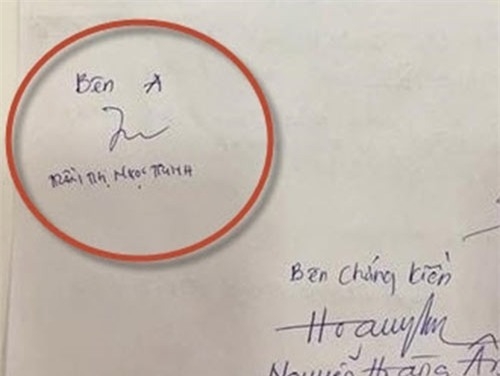 Bên A
Trần Thị Ngọc Trinh
Bên chứng kiến
Nguyễn Hoàng Ân